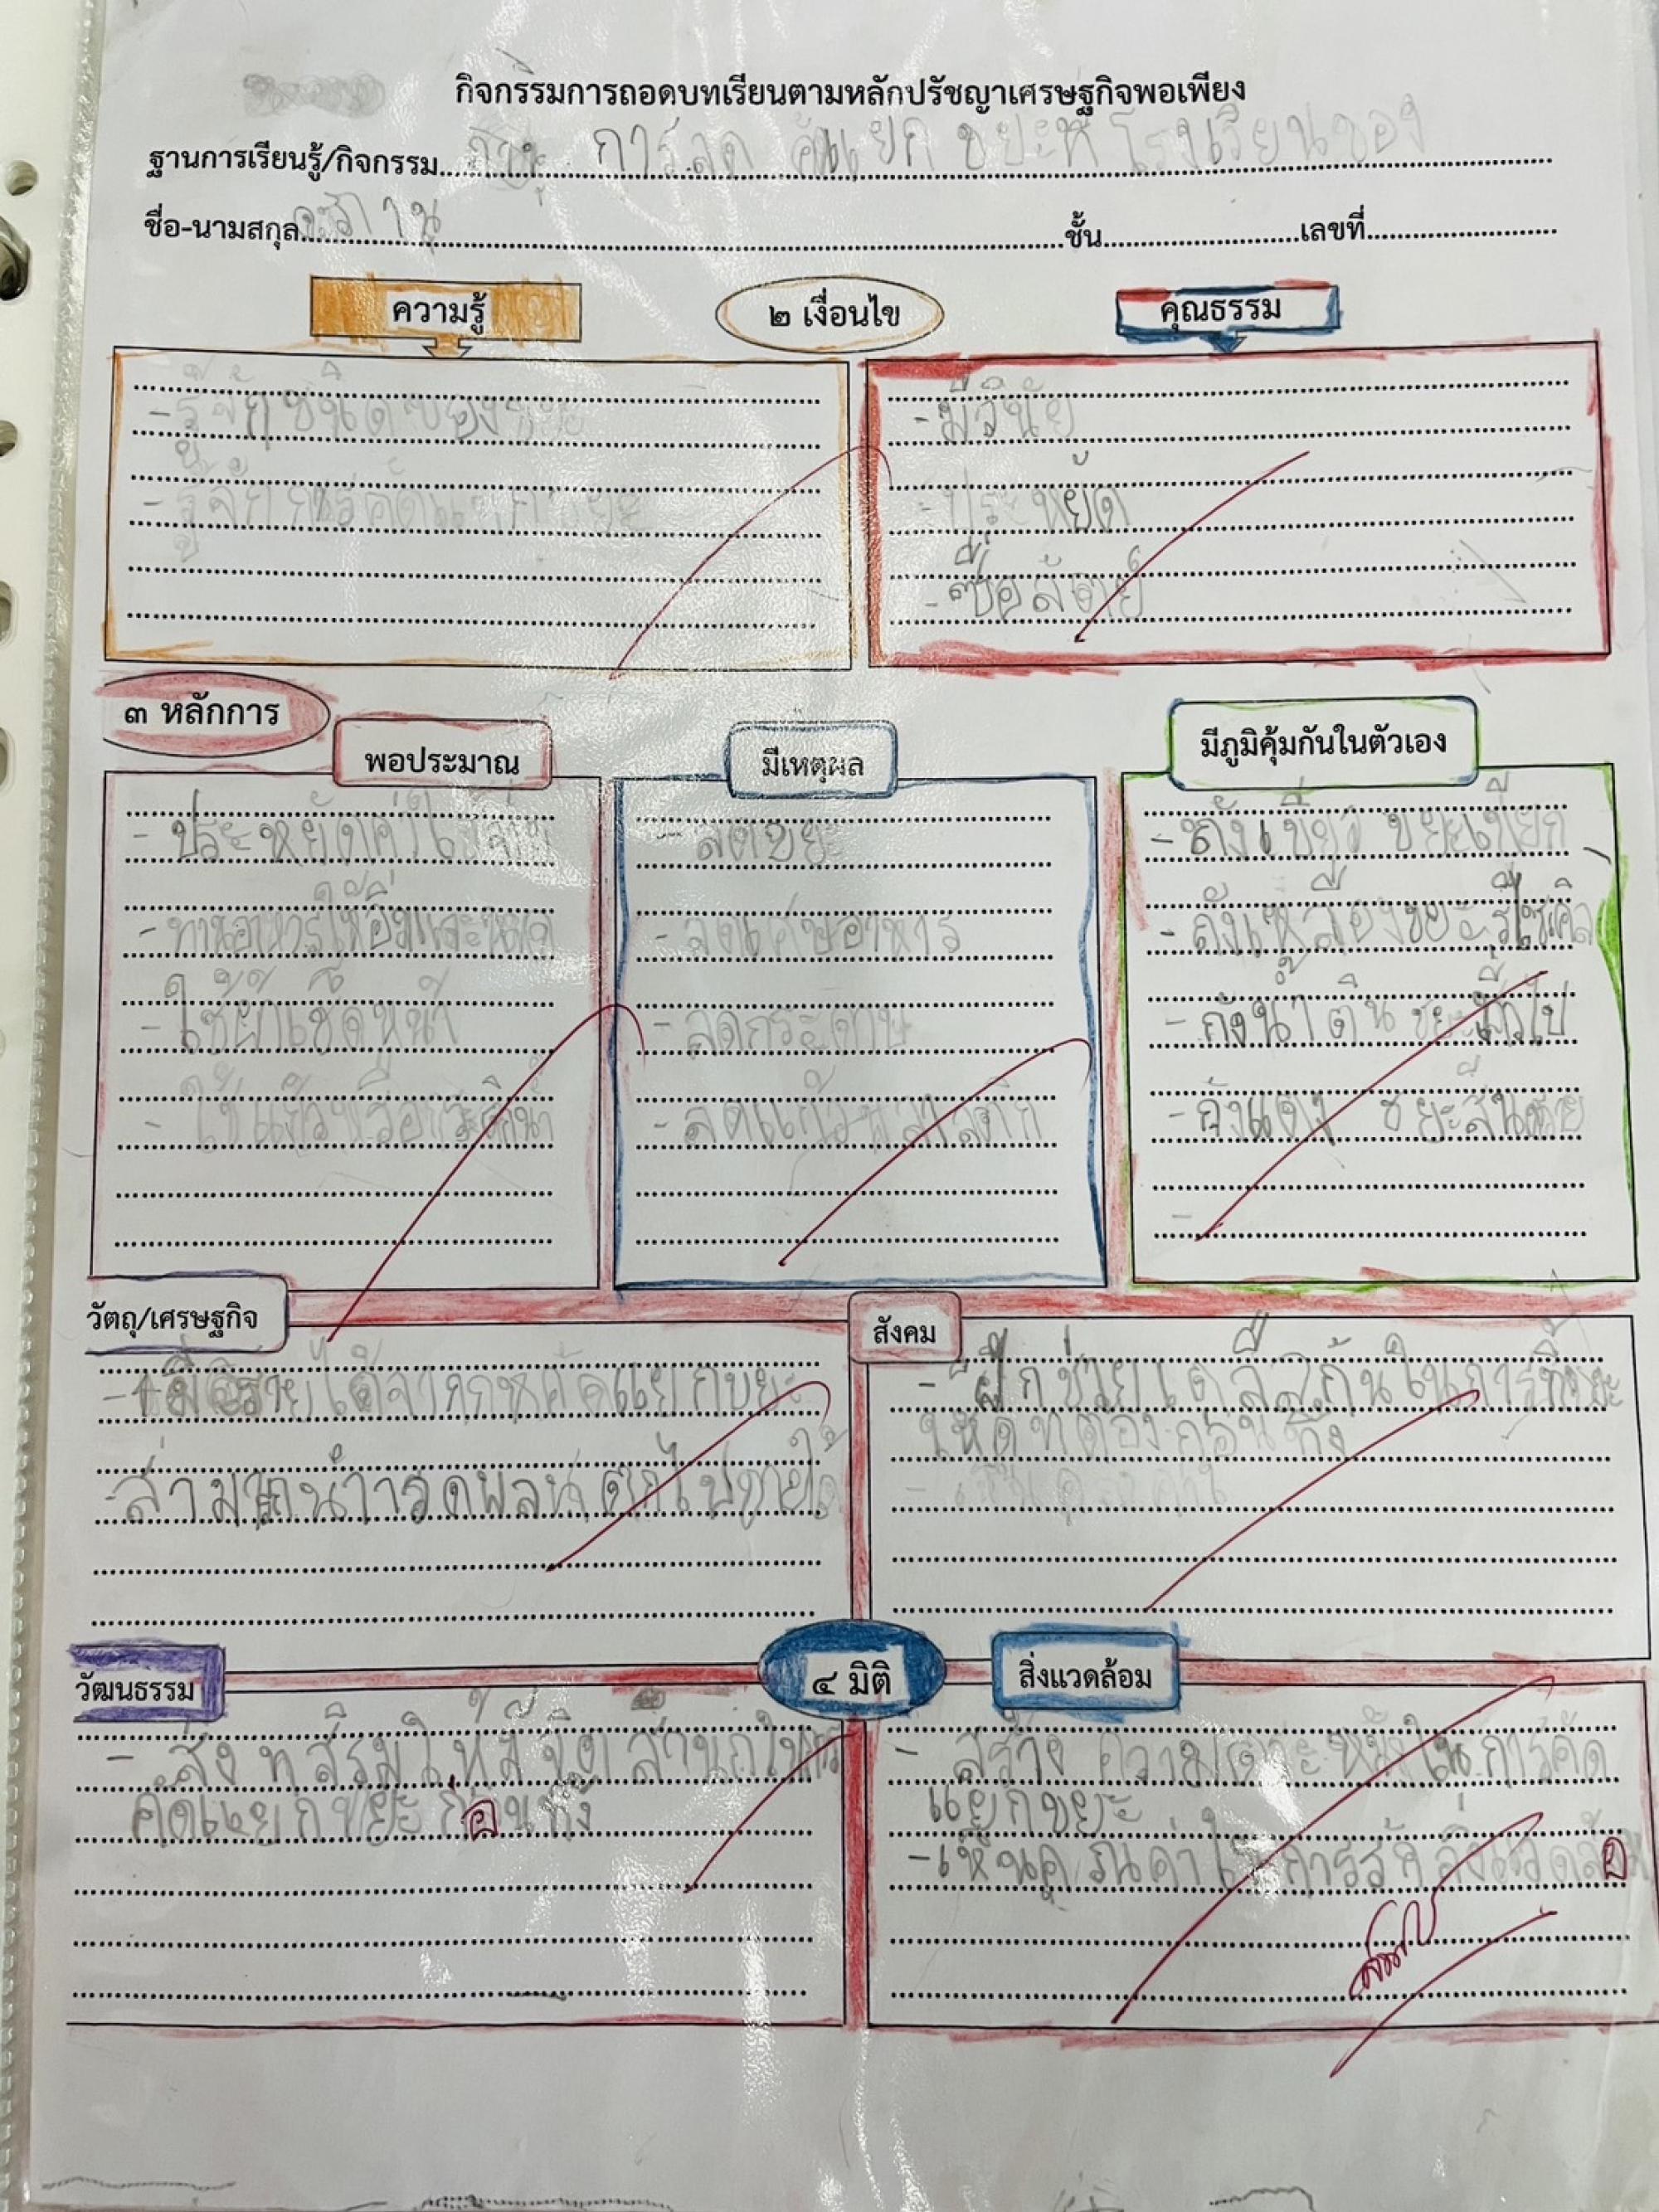 กิจกรรมการถอดบทเรียนตามหลักปรัชญาเศรษฐกิจพอเพียง
ฐานการเรียนรู้/กิจกรรม การลด คัดแยก ขยะที่โรงเรียนของ
ชื่อ-นามสกุล ชั้น เลขที่
ความรู้ ๒ เงื่อนไข คุณธรรม
- รู้จักชนิดของขยะ
- รู้จักการคัดแยกขยะ
- มีวินัย
- ประหยัด
- ซื่อสัตย์
๓ หลักการ
พอประมาณ
- ประหยัดค่าใช้จ่าย
- ทานอาหารให้อิ่มและหมด
- ใช้ผ้าเช็ดหน้า
- ใช้แก้วหรือกระติกน้ำ
มีเหตุผล
- ลดขยะ
- ลดเศษอาหาร
- ลดกระดาษ
- ลดแก้วพลาสติก
มีภูมิคุ้มกันในตัวเอง
- ถังเขียว ขยะเปียก
- ถังเหลืองขยะรีไซเคิล
- ถังน้ำเงิน ขยะทั่วไป
- ถังแดง ขยะอันตราย
-
วัตถุ/เศรษฐกิจ
- มีรายได้จากคัดแยกขยะ
สังคม
- ฝึกช่วยเหลือกันในการทิ้งขยะ
ก่อนทิ้ง
๔ มิติ
วัฒนธรรม
ให้มีจิตสำนึกในการ
คัดแหยกขยะก่อนทิ้ง
สิ่งแวดล้อม
- สร้าง ความตระหนักใน การคัด
แยกขยะ
- เห็นคุณค่าในการรักสิ่งแวดล้อม